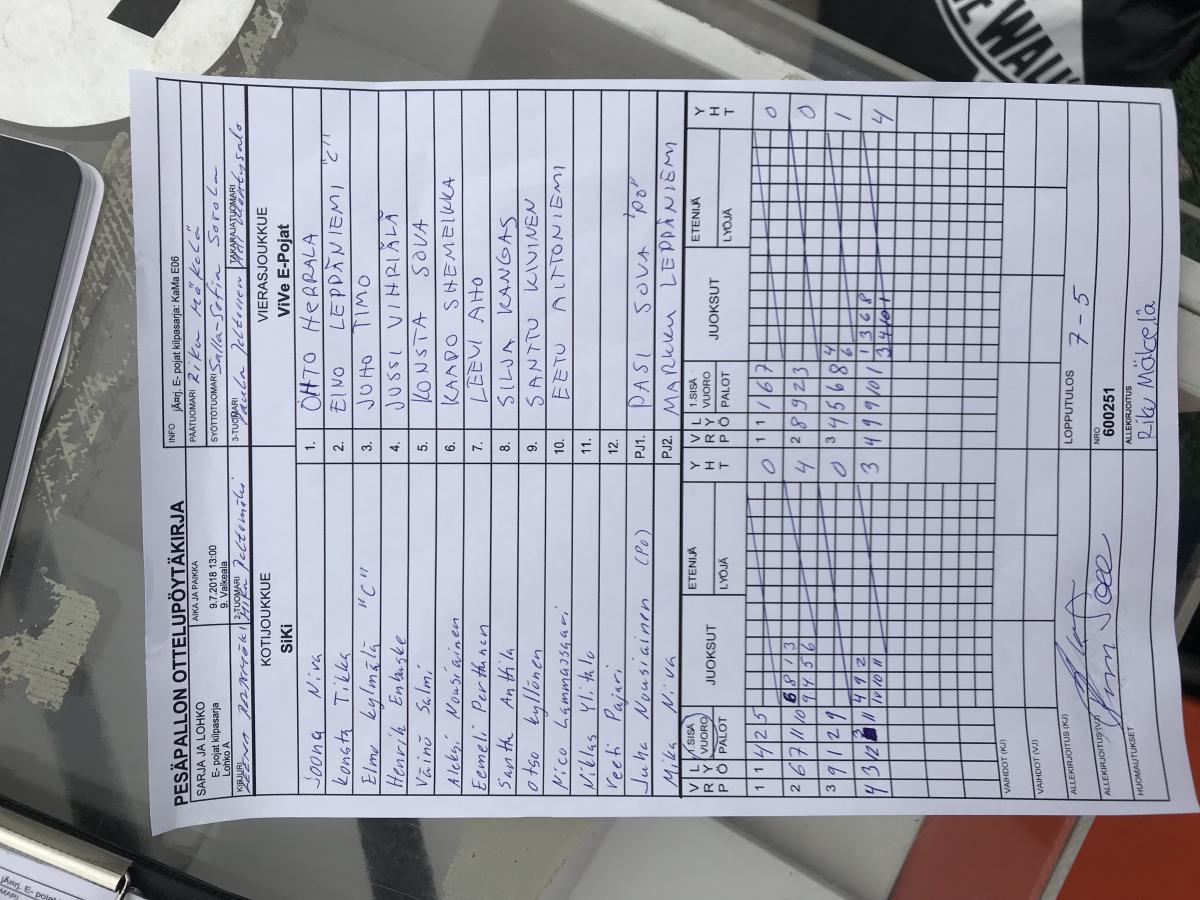 PESÄPALLON OTTELUPÖYTÄKIRJA
SARJA JA LOHKO
E-pojat kilpasarja
Lohko A
AIKA JA PAIKKA
9.7.2018 13:00
9. Valkeala
INFO jÄrrj. E- pojat kilpasarja: KaMa E06
PÄÄTUOMARI Riku Mäkelä
SYÖTTÖTUOMARI Salla-Sofia Sorola
KIRJURI
2-TUOMARI Mika Peltomäki
3-TUOMARI Paula Peltonen
TAKARAJATUOMARI Mäntysalo
KOTIJOUKKUE
SiKi
VIERASJOUKKUE
ViVe E-Pojat
Joona Niva 1. OHTO HERRALA
Konsta Tikka 2. EINO LEPPÄNIEMI "C"
Elmo Kylmälä "C" 3. JUHO TIMO
Henrik Enbuske 4. JUSSI VIHRIÄLÄ
Väinö Salmi 5. KONSTA SOVA
Aleksi Nousiainen 6. KAAPO SHEMEIKKA
Eemeli Perttunen 7. LEEVI AHO
Santtu Anttila 8. SILJA KANGAS
Otso Kyllönen 9. SANTTU KIVINEN
Nico Lammassaari 10. EETU AITTONIEMI
Niklas Ylitalo 11.
Veeti Pajari 12.
Juha Nousiainen (PO) PJ1. PASI SOVA "PO"
Mika Niva PJ2. MARKKU LEPPÄNIEMI
V L 1.SISÄ JUOKSUT ETENIJÄ Y V L 1.SISÄ JUOKSUT ETENIJÄ Y
R Y VUORO H R Y VUORO H
P Ö PALOT LYÖJÄ T P Ö PALOT LYÖJÄ T
1 1 4 2 5 0 1 1 1 6 7 0
6 8 1 3
2 6 7 11 10 9 4 5 6 4 2 8 9 2 3 0
3 9 1 2 9 0 3 4 5 6 8 4 6 1
4 9 2 1 3 6 8
4 3 12 11 10 10 11 3 4 9 9 10 1 3 4 10 1 4
VAIHDOT (KJ)
VAIHDOT (VJ)
ALLEKIRJOITUS (KJ)
LOPPUTULOS 7-5
ALLEKIRJOITUS (VJ)
NRO
600251
HUOMAUTUKSET
ALLEKIRJOITUS
Riku Mäkelä
WALK
jÄrrj. E- pojat